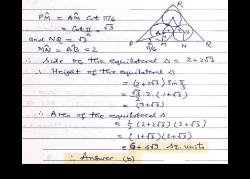 PM = AM Cot π/6
= Cot π/6 = √3
and NQ = √3
MN = AB = 2
∴ Side of the equilateral Δ = 2+2√3
∴ Height of the equilateral Δ
= (2+2√3) Sin π/3
= √3/2 . 2 (1+√3)
= (3+√3)
∴ Area of the equilateral Δ
= 1/2 (2+2√3) (3+√3)
= (1+√3) (3+√3)
= 6+4√3 sq. units
∴ Answer (b)
R
P
M
N
Q
π/6